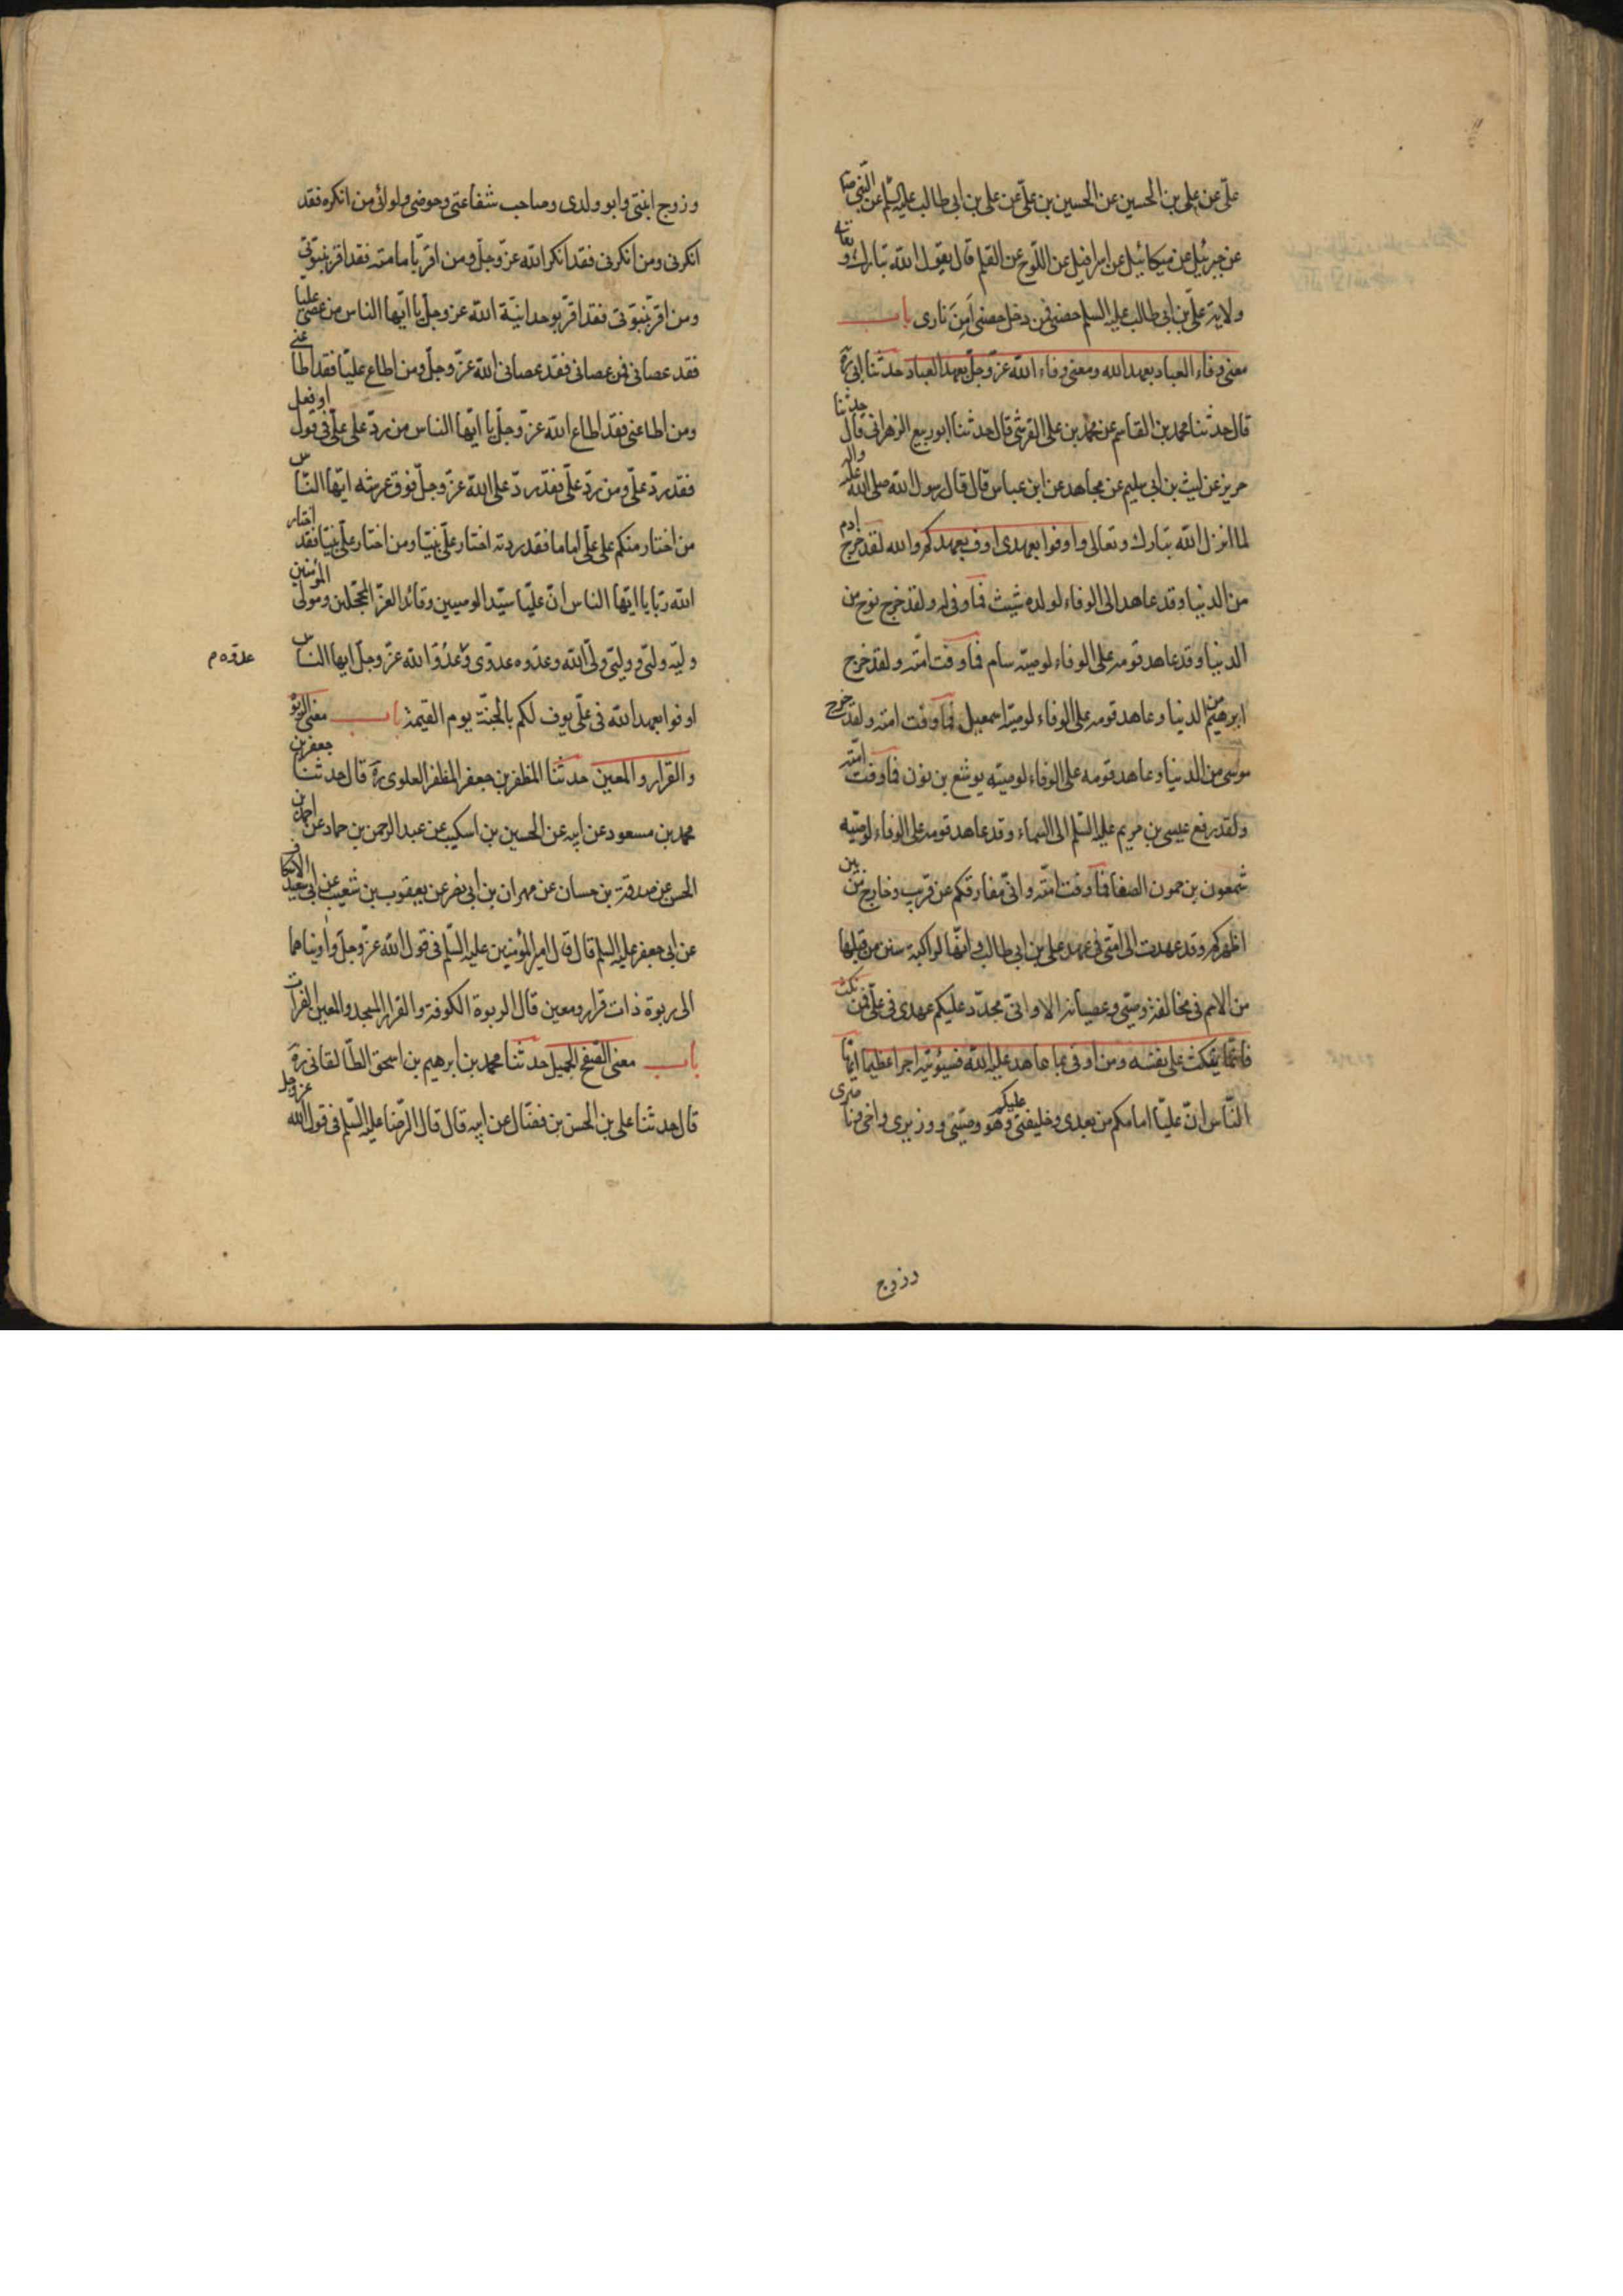 علیّ عن علی بن الحسین عن الحسین بن علیّ عن علی بن ابی طالب علیه السّلم عن النّبی ص
عن جبرئیل عن میکائیل عن اسرافیل عن اللّوح عن القلم قال یقول الله تبارک و تعالی
ولایة علیّ بن ابی طالب علیه السلم حصنی فمن دخل حصنی اَمِنَ ناری باب
معنی وفاء العباد بعهد الله ومعنی وفاء الله عزّ وجلّ بعهد العباد حدّثنا ابی ره
قال حدّثنا محمد بن القاسم عن محمد بن علی القرشی قال حدثنا ابو ربیع الزهرانی قال حدثنا
حریز عن لیث بن ابی سلیم عن مجاهد عن ابن عباس قال قال رسول الله صلی الله علیه واله
لما انزل الله تبارک وتعالی واوفوا بعهدی اوف بعهدکم والله لقد خرج ادم
من الدنیا وقد عاهد الی الوفاء لولده شیث فما وفی له ولقد خرج نوح من
الدنیا وقد عاهد قومه علی الوفاء لوصیّه سام فما وفت امّته ولقد خرج
ابرهیم من الدنیا وعاهد قومه علی الوفاء لوصیّه اسمعیل فما وفت امته ولقد خرج
موسی من الدنیا وعاهد قومه علی الوفاء لوصیّه یوشع بن نون فما وفت امّته
ولقد رفع عیسی بن مریم علیه السّلم الی السماء وقد عاهد قومه علی الوفاء لوصیّه
شمعون بن حمون الصفا فما وفت امّته وانّی مفارقکم عن قریب وخارج من بین
اظهرکم وقد عهدت الی امّتی فی عهد علی بن ابی طالب وانّها لراکبة سنن من قبلها
من الامم فی مخالفة وصیّی وعصیانه الا وانّی مجدّد علیکم عهدی فی علیّ فمن نکث
فانّما ینکث علی نفسه ومن اوفی بما عاهد علیه الله فسیؤتیه اجرا عظیما ایّها
النّاس انّ علیّا امامکم من بعدی وخلیفتی علیکم وهو وصیّی ووزیری واخی وناصری
وزوج
وزوج ابنتی وابو ولدی وصاحب شفاعتی وحوضی ولوائی من انکره فقد
انکرنی ومن انکرنی فقد انکر الله عزّ وجلّ ومن اقرّ بامامته فقد اقر بنبوّتی
ومن اقرّ بنبوّتی فقد اقرّ بوحدانیّة الله عزّ وجلّ یا ایّها الناس من عصی علیا
فقد عصانی ومن عصانی فقد عصانی الله عزّ وجلّ ومن اطاع علیّا فقد اطاعنی
ومن اطاعنی فقد اطاع الله عزّ وجلّ یا ایّها الناس من ردّ علی علیّ فی قول او فعل
فقد ردّ علیّ ومن ردّ علیّ فقد ردّ علی الله عزّ وجلّ فوق عرشه ایّها النّاس
من اختار منکم علی علیّ اماما فقد اختار علیّ نبیّا ومن اختار علیّ نبیّا فقد اختار
الله ربّا یا ایّها الناس انّ علیّا سیّد الوصیین وقائد الغرّ المحجّلین ومولی المؤمنین
ولیّه ولیّی وولیّی ولیّ الله وعدّوه عدوّی وعدُوّ الله عزّ وجلّ ایها النّاس
عدوّه م
اوفوا بعهد الله فی علیّ یوف لکم بالجنّة یوم القیمة باب معنی الربوة
والقرار والمعین حدثنا المظفر بن جعفر المظفر العلوی ره قال حدثنا جعفر بن
محمد بن مسعود عن ابیه عن الحسین بن اسکیب عن عبد الرحمن بن حماد عن احمد بن
الحسن عن صدقة بن حسان عن مهران بن ابی نصر عن یعقوب بن شعیب عن ابی سعید الاسکاف
عن ابی جعفر علیه السلم قال قال امیر المؤمنین علیه السّلم فی قول الله عزّ وجلّ واویناهما
الی ربوة ذات قرار ومعین قال الربوة الکوفة والقرار المسجد والمعین الفرات
باب معنی الصّفح الجمیل حدثنا محمد بن ابرهیم بن اسحق الطّالقانی ره
قال حدثنا علی بن الحسن بن فضّال عن ابیه قال قال الرّضا علیه السّلم فی قول الله عزّ وجلّ